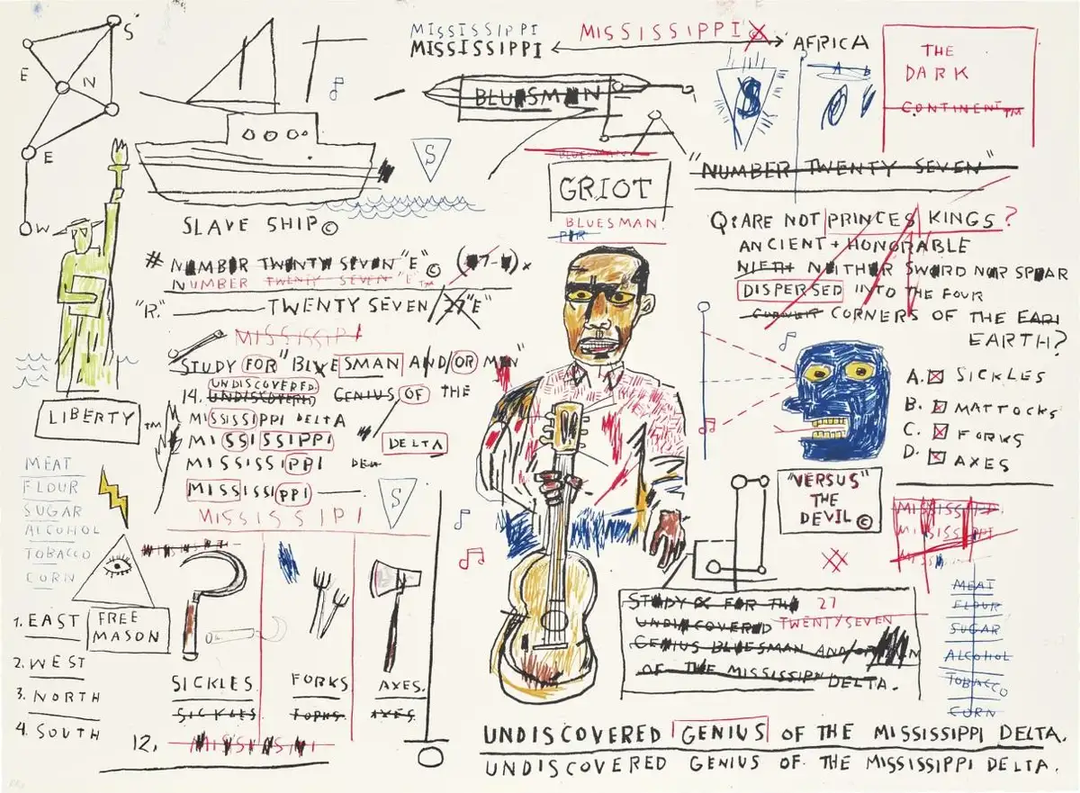 S
E
N
E
W
MISSISSIPPI
MISSISSIPPI
MISSISSIPPI
AFRICA
BLUESMAN
THE
DARK
CONTINENT™
S
S
SLAVE SHIP©
GRIOT
BLUESMAN
"NUMBER TWENTY SEVEN"
# NUMBER TWENTY SEVEN "E"©
NUMBER TWENTY SEVEN "E™
"R." TWENTY SEVEN/27"E"
Q: ARE NOT PRINCES KINGS?
ANCIENT + HONORABLE
NEITHER SWORD NOR SPEAR
DISPERSED INTO THE FOUR
CORNER CORNERS OF THE EARI
EARTH?
STUDY FOR "BLUESMAN AND/OR MAN"
UNDISCOVERED
14. UNDISCOVERED GENIUS OF THE
MISSISSIPPI DELTA
MISSISSIPPI DELTA
MISSISSIPPI
MISSISSIPPI
MISSISSIPI
S
LIBERTY™
MEAT
FLOUR
SUGAR
ALCOHOL
TOBACCO
CORN
A. SICKLES
B. MATTOCKS
C. FORKS
D. AXES
"VERSUS"
THE
DEVIL©
FREE
MASON
1. EAST
2. WEST
3. NORTH
4. SOUTH
SICKLES
SICKLES
FORKS
FORKS
AXES.
AXES.
12.
STUDY FOR THE 27
UNDISCOVERED TWENTYSEVEN
GENIUS BLUESMAN AND/OR
OF THE MISSISSIPPI DELTA.
MEAT
FLOUR
SUGAR
ALCOHOL
TOBACCO
CORN
UNDISCOVERED GENIUS OF THE MISSISSIPPI DELTA.
UNDISCOVERED GENIUS OF THE MISSISSIPPI DELTA.